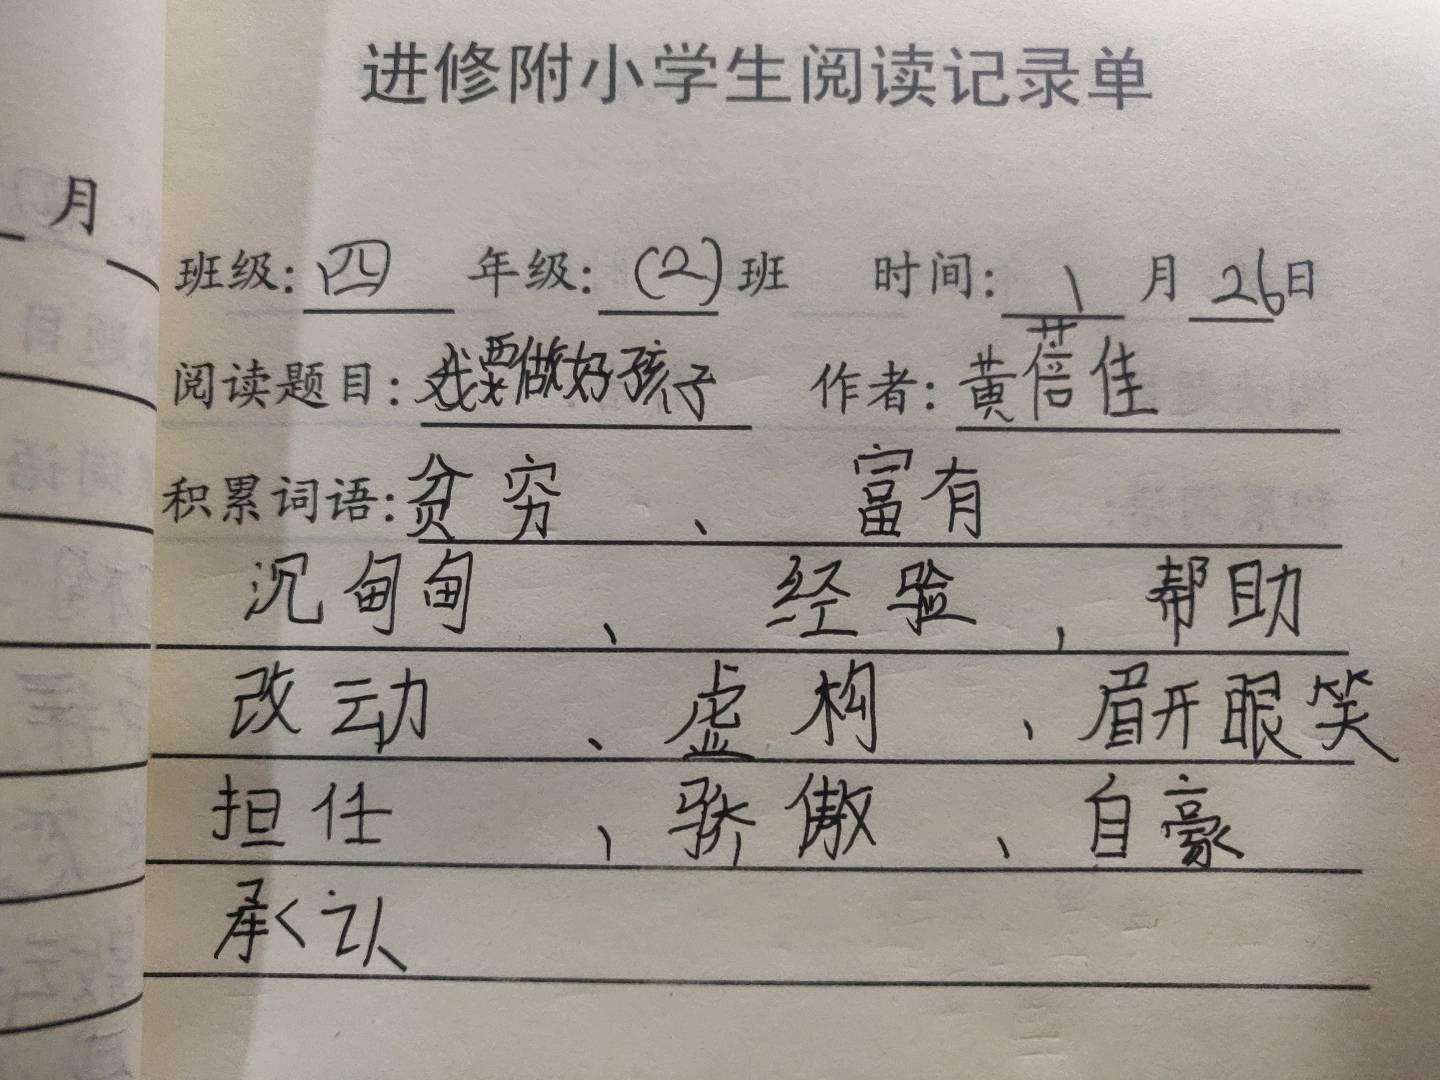 进修附小学生阅读记录单
月
班级：四 年级：(2)班 时间：1月26日
阅读题目：我要做好孩子 作者：黄蓓佳
积累词语：贫穷、富有
沉甸甸、经验，帮助
改动、虚构、眉开眼笑
担任、骄傲、自豪
承认